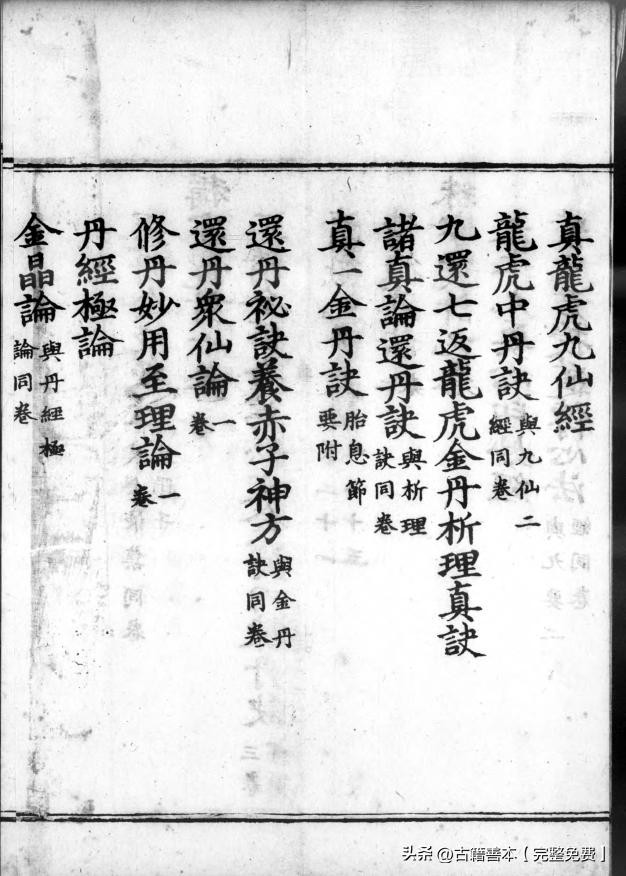 真龍虎九仙經
龍虎中丹訣 與九仙二經同卷
九還七返龍虎金丹析理真訣
諸真論還丹訣 與析理訣同卷
真一金丹訣 胎息節要附
還丹祕訣養赤子神方 與金丹訣同卷
還丹眾仙論 一卷
修丹妙用至理論 一卷
丹經極論
金晶論 與丹經極論同卷
头条 @古籍善本【完整免费】